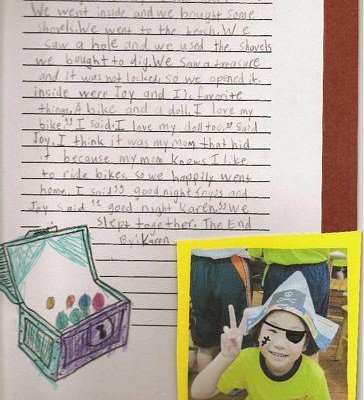 We went inside and we brought some
shovels. We went to the beach. We
saw a hole and we used the shovels
we bought to dig. We saw a treasure
and it was not locked, so we opened it.
inside were Joy and I's favorite
things. A bike and a doll. I love my
bike" I said. I love my doll too," said
Joy. I think it was my mom that hid
it because my mom knows I like
to ride bikes. so we happily went
home. I said" good night Joy" and
Joy said " good night Karen." We
slept together. The End
By: Karen